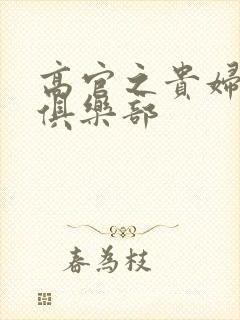 高官之貴婦
俱樂部
春為枝